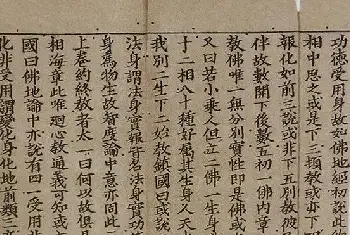 功德受用身故如佛地經初說此他
相中思之或是下三類教或亦下
報化如前三說或非下五别教披
伴故歎開下後數五初一佛内章
又曰若小乘人但立二佛一生身
教佛唯一無分别實性即是佛或
于二相八十種好屬其生身又天
我别二生下二始教鎮國曰或說
法身謂法身實報普名法身實功
身爲物生故皆論中意亦同此
上卷約終教者太一曰何以故俱
相海章此唯迴心教通義可知或
國曰佛地論中亦說有四一受用
化非受用謂變化身化地前類三